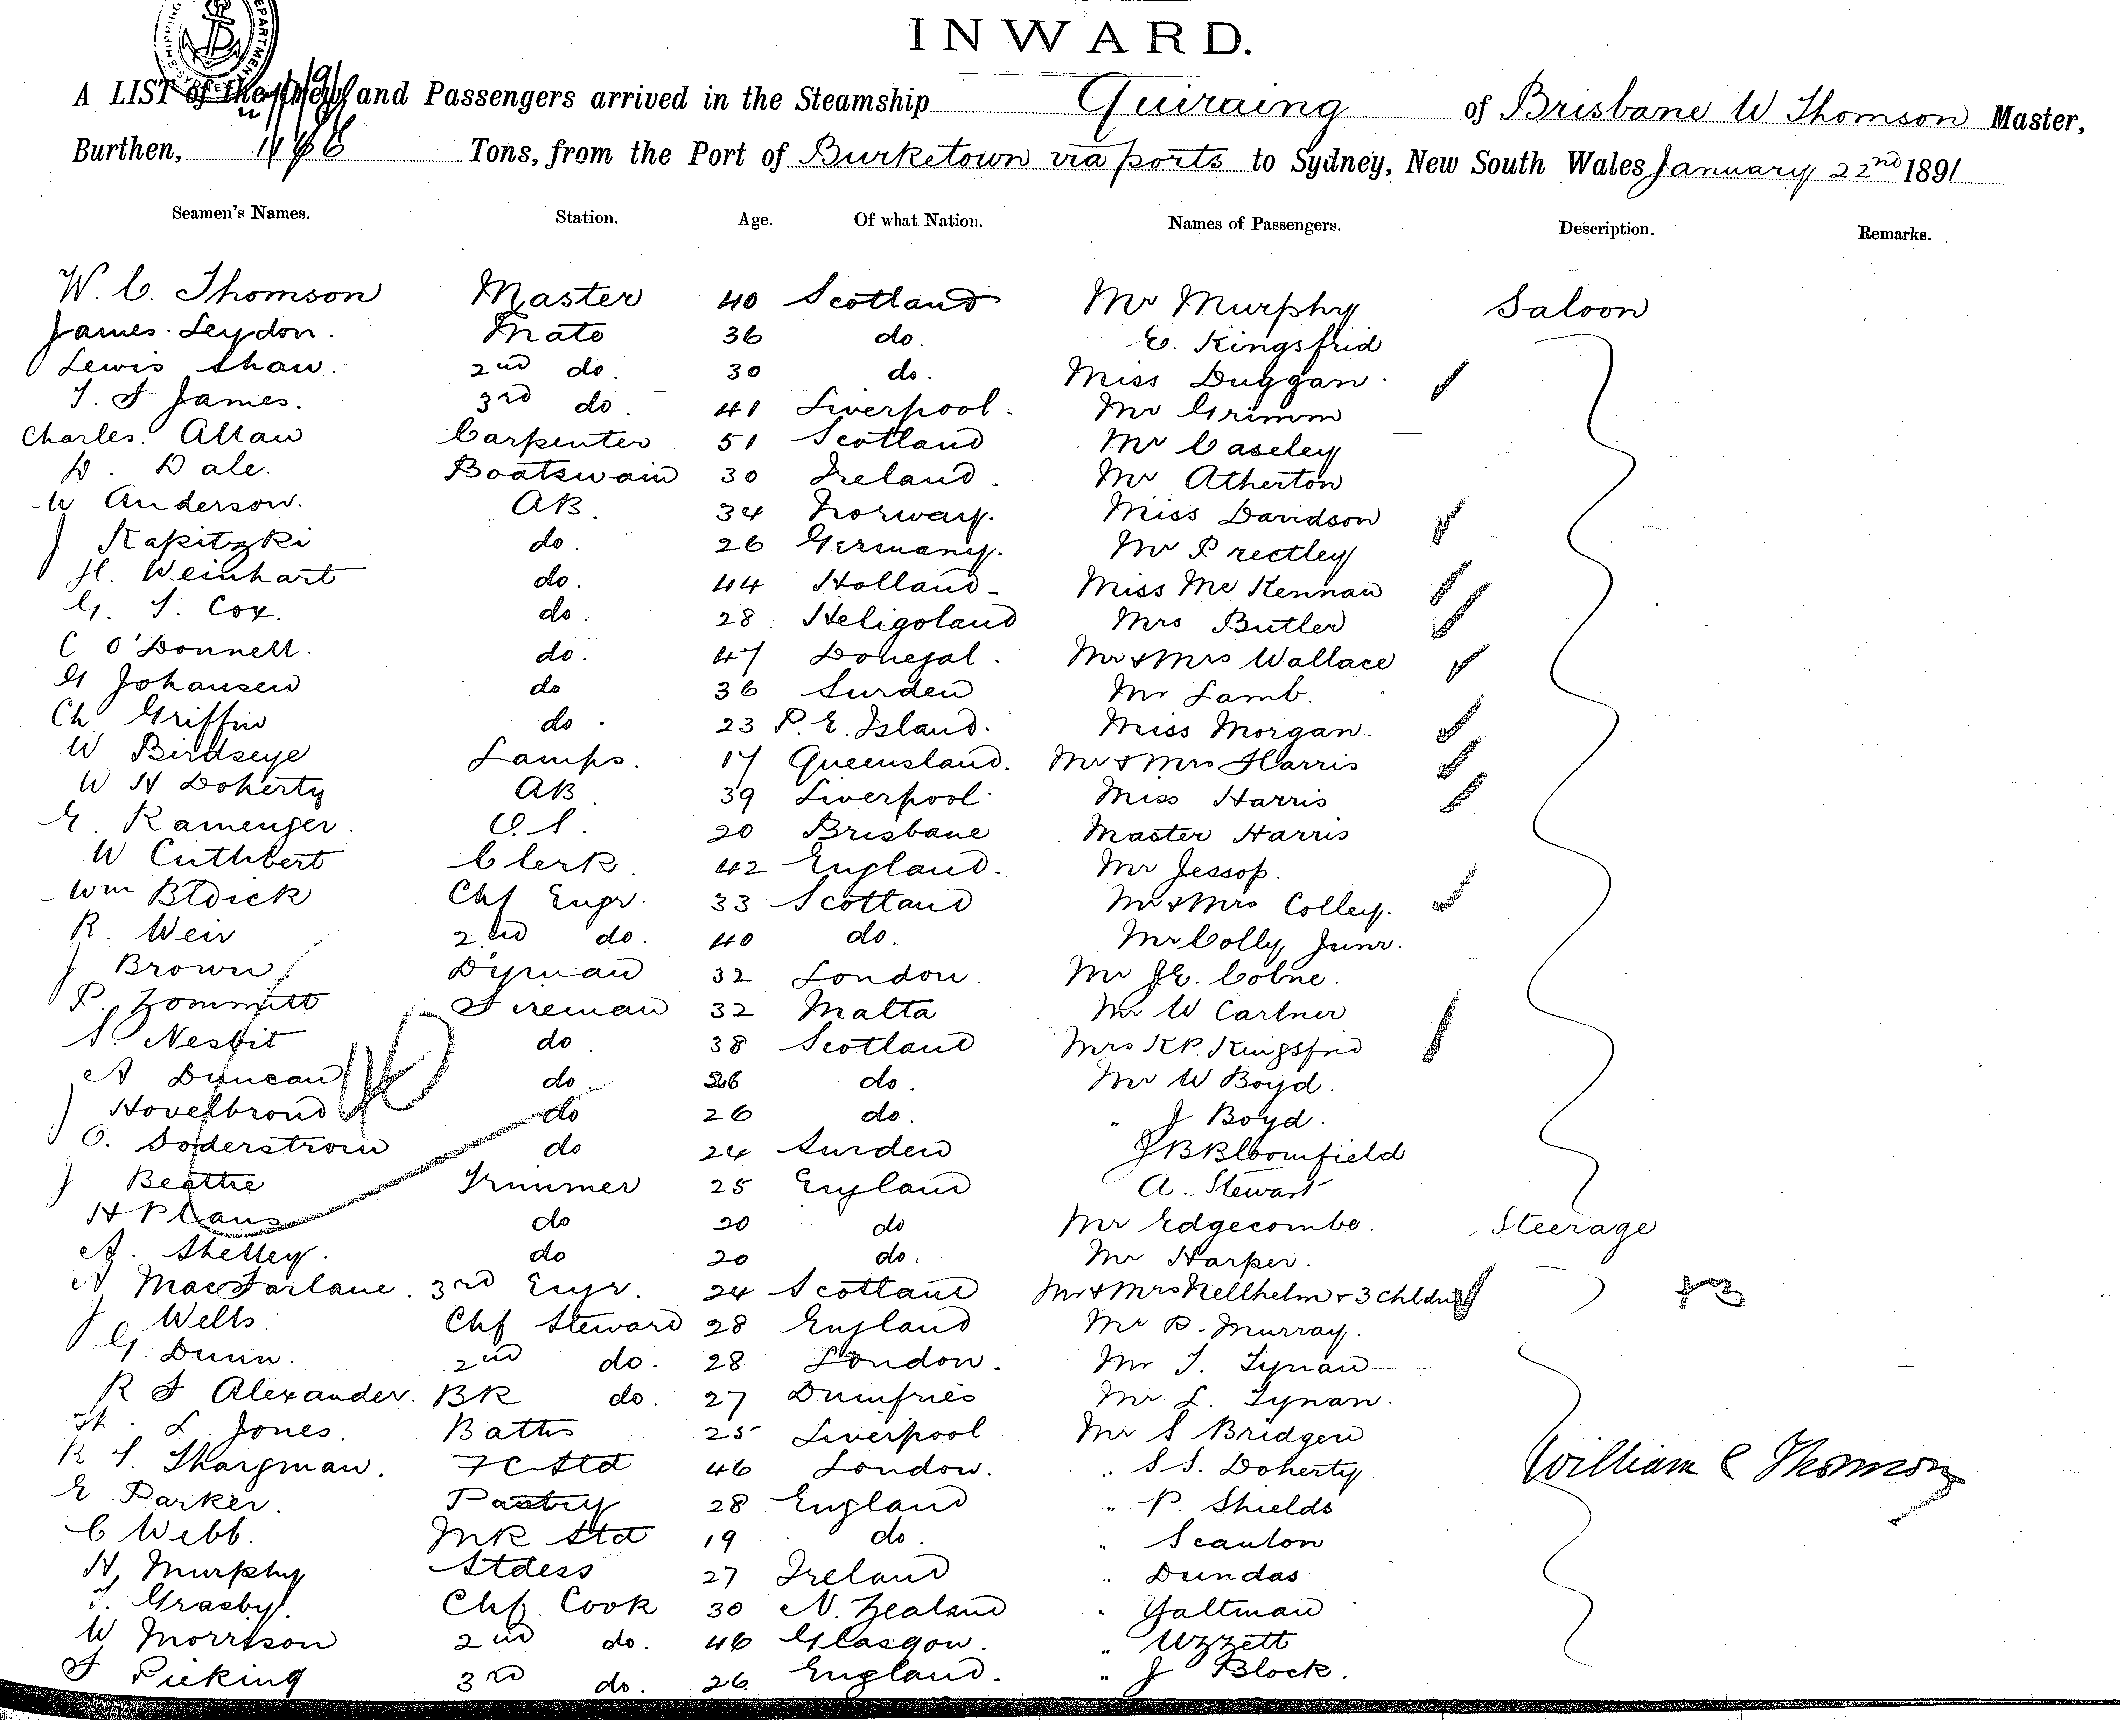 INWARD.
A LIST of the Crew and Passengers arrived in the Steamship Quiraing of Brisbane W Thomson Master,
Burthen, Tons, from the Port of Burketown via ports to Sydney, New South Wales January 22nd 1891
Seamen's Names. Station. Age. Of what Nation. Names of Passengers. Description. Remarks.
W. C. Thomson Master 40 Scotland Mr Murphy Saloon
James Leydon. Mate 36 do. E. Kingsfrid
Lewis Shaw. 2nd do. 30 do. Miss Duggan.
T. S James. 3rd do. 41 Liverpool. Mr Grimm
Charles Allan Carpenter 51 Scotland Mr Caseley
D. Dale. Boatswain 30 Ireland. Mr Atherton
W Anderson. AB. 34 Norway. Miss Davidson
J Kapitzki do. 26 Germany. Mr
H. Weinhart do. 44 Holland Miss Mc Kennan
G. S. Cox. do. 28 Heligoland Mrs Butler
C O'Donnell. do. 47 Donegal. Mr & Mrs Wallace
G Johansen do 36 Surden Mr Lamb.
Ch Griffin do. 23 P. E. Island. Miss Morgan.
W Birdseye Lamps. 17 Queensland. Mr & Mrs Harris
W H Doherty AB. 39 Liverpool Miss Harris
E. Ramenger. O.S. 20 Brisbane Master Harris
W Cuthbert Clerk. 42 England. Mr Jessop.
Wm Bldick Chf Engr. 33 Scotland Mr & Mrs Colley.
R. Weir 2nd do. 40 do. Mr Colly, Junr.
J Brown D'yman 32 London. Mr J.E. Colne.
P. Zommitt Fireman 32 Malta Mr W Cartner
S. Nesbit do. 38 Scotland Mrs K P. Kingsfrid
A Duncan do. 26 do. Mr W Boyd.
J Hovelbrond do 26 do. " J Boyd.
O. Soderstrom do 24 Surden J B Bloomfield
J Beattie Trimmer 25 England A. Stewart
H do 20 do Mr Edgecombe. Steerage
A. Shelley. do 20 do. Mr Harper.
A MacFarlane. 3rd Engr. 24 Scotland Mr & Mrs Nellhelm + 3 Chldn +3
J Wells Chf Steward 28 England Mr P. Murray.
G. Dunn. 2nd do. 28 London. Mr T. Tynan
R J Alexander. BR do. 27 Dumfries Mr L. Tynan.
L Jones. Baths 25 Liverpool Mr S Bridgen
R S. Thargman. FC Std 46 London. " S S. Doherty William C Thomson
E Parker. Pastry 28 England " P. Shields
C Webb. MR Std 19 do. " Scanlon
H, Murphy Stdess 27 Ireland " Dundas
T. Grasby. Chf. Cook 30 N. Zealand " Yaltman
W Morrison 2nd do. 46 Glasgow. " Uzzett
J Picking 3rd do. 26 England. " J Block.